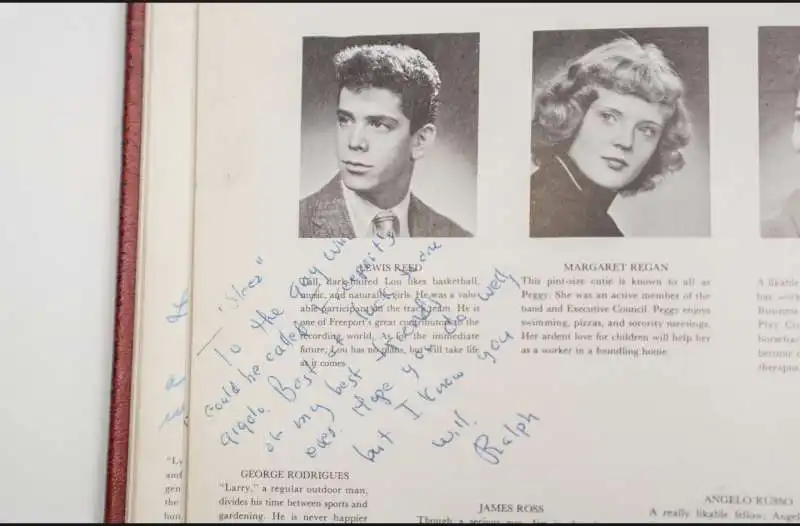 LEWIS REED
Tall, dark haired Lou likes basketball,
music, and naturally, girls. He was a valu
able participant in the track team. He is
one of Freeport's great contributors to the
recording world. As for the immediate
future, Lou has no plans, but will take life
as it comes.
MARGARET REGAN
This pint-size cutie is known to all as
Peggy. She was an active member of the
band and Executive Council. Peggy enjoys
swimming, pizzas, and sorority meetings.
Her ardent love for children will help her
as a worker in a foundling home.
A likable
has work
Business
Play Co
horseba
become
therapis
To the guy who
could be called
gigolo. Best of luck
on my best friends
Hope you do well,
but I know you
will.
Ralph
"Ly
and
gen
the
hun
GEORGE RODRIGUES
"Larry," a regular outdoor man,
divides his time between sports and
gardening. He is never happier
JAMES ROSS
Though a serious
ANGELO RUSSO
A really likable fellow, Angel